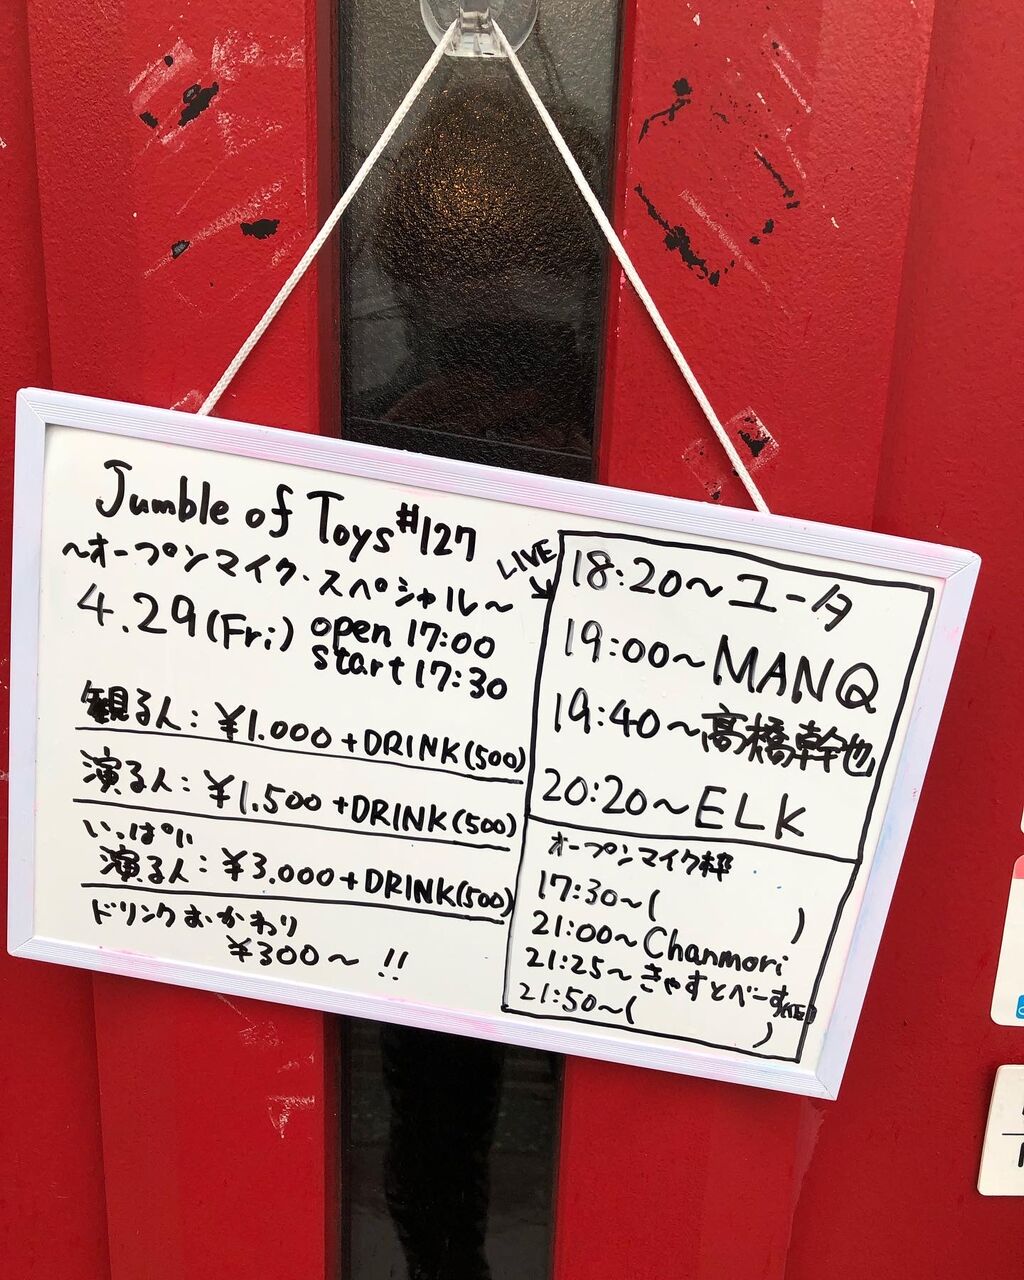 Jumble of Toys #127
〜オープンマイク・スペシャル〜
4.29(Fri) open 17:00
start 17:30
観る人:¥1.000+DRINK(500)
演る人:¥1.500+DRINK(500)
いっぱい
演る人:¥3.000+DRINK(500)
ドリンクおかわり
¥300〜!!
LIVE
18:20〜ユータ
19:00〜MANQ
19:40〜高橋幹也
20:20〜ELK
オープンマイク枠
17:30〜( )
21:00〜Chanmori
21:25〜きゃすとべーす
21:50〜( )